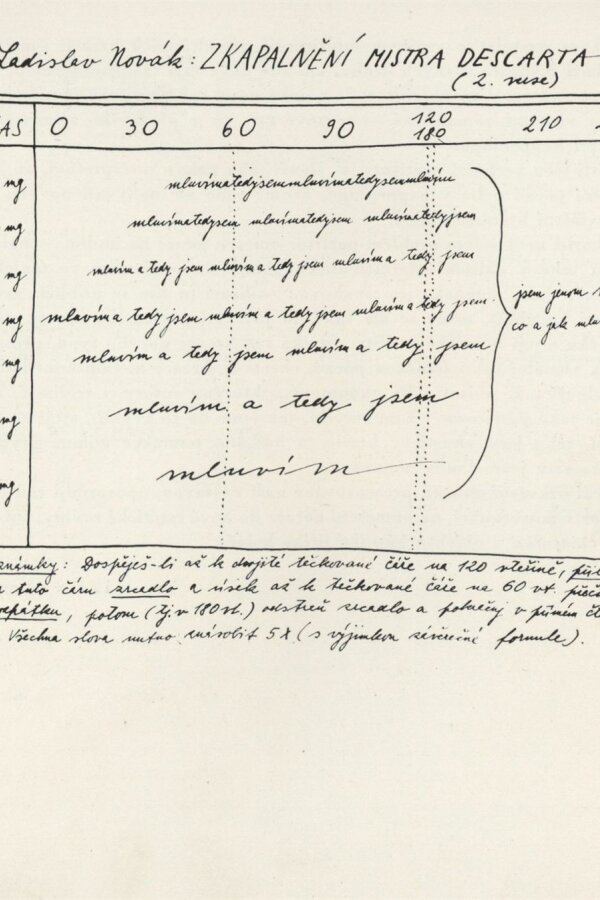 Ladislav Novák: ZKAPALNĚNÍ MISTRA DESCARTA
(2. verse)
ČAS 0 30 60 90 120 210
180
mg mluvímatedyjsemmluvímatedyjsemmluvím
mg mluvímatedyjsem mluvímatedyjsem mluvímatedyjsem
mg mluvím a tedy jsem mluvím a tedy jsem mluvím a tedy jsem
mg mluvím a tedy jsem mluvím a tedy jsem mluvím a tedy jsem
jsem jenom
co a jak
mg mluvím a tedy jsem mluvím a tedy jsem
mg mluvím a tedy jsem
mg mluvím
známky: Dospěješ-li až k dvojité tečkované čáře na 120 vteřině,
tuto čáru zrcadlo a úsek až k tečkované čáře na 60 vt.
potom (tj. v 180 vt.) odstraň zrcadlo a pokračuj v přímém
Všechna slova nutno znásobit 5x (s výjimkou závěrečné formule).